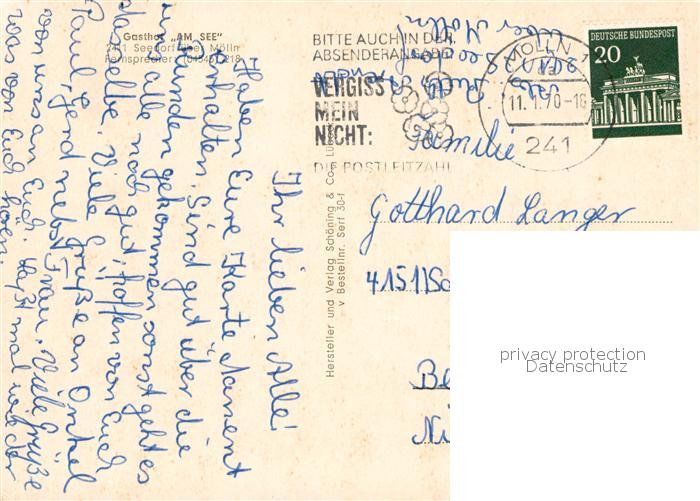 Gasthof „AM SEE"
2411 Seedorf über Mölln
Fernsprecher (04545) 218
Ihr lieben Alle!
Haben Eure Karte dament
erhalten. Sind gut über die
Runden gekommen sonst geht es
uns alle noch gut, hoffen von Euch
dasselbe. Viele Grüße an Onkel
Paul, Gerd nebst Frau. Viele Grüße
von uns an Euch. Laßt mal wieder
was von Euch hören.
Hersteller und Verlag Schöning & Co., Lübeck
v Bestellnr. Serf 30-f
BITTE AUCH IN DER
ABSENDERANGABE
VERGISS
MEIN
NICHT:
DIE POSTLEITZAHL
MÖLLN
11.1.70-18
241
DEUTSCHE BUNDESPOST
20
über Mölln
2411
Familie
Gotthard Langer
4151
Be
Ni
privacy protection
Datenschutz